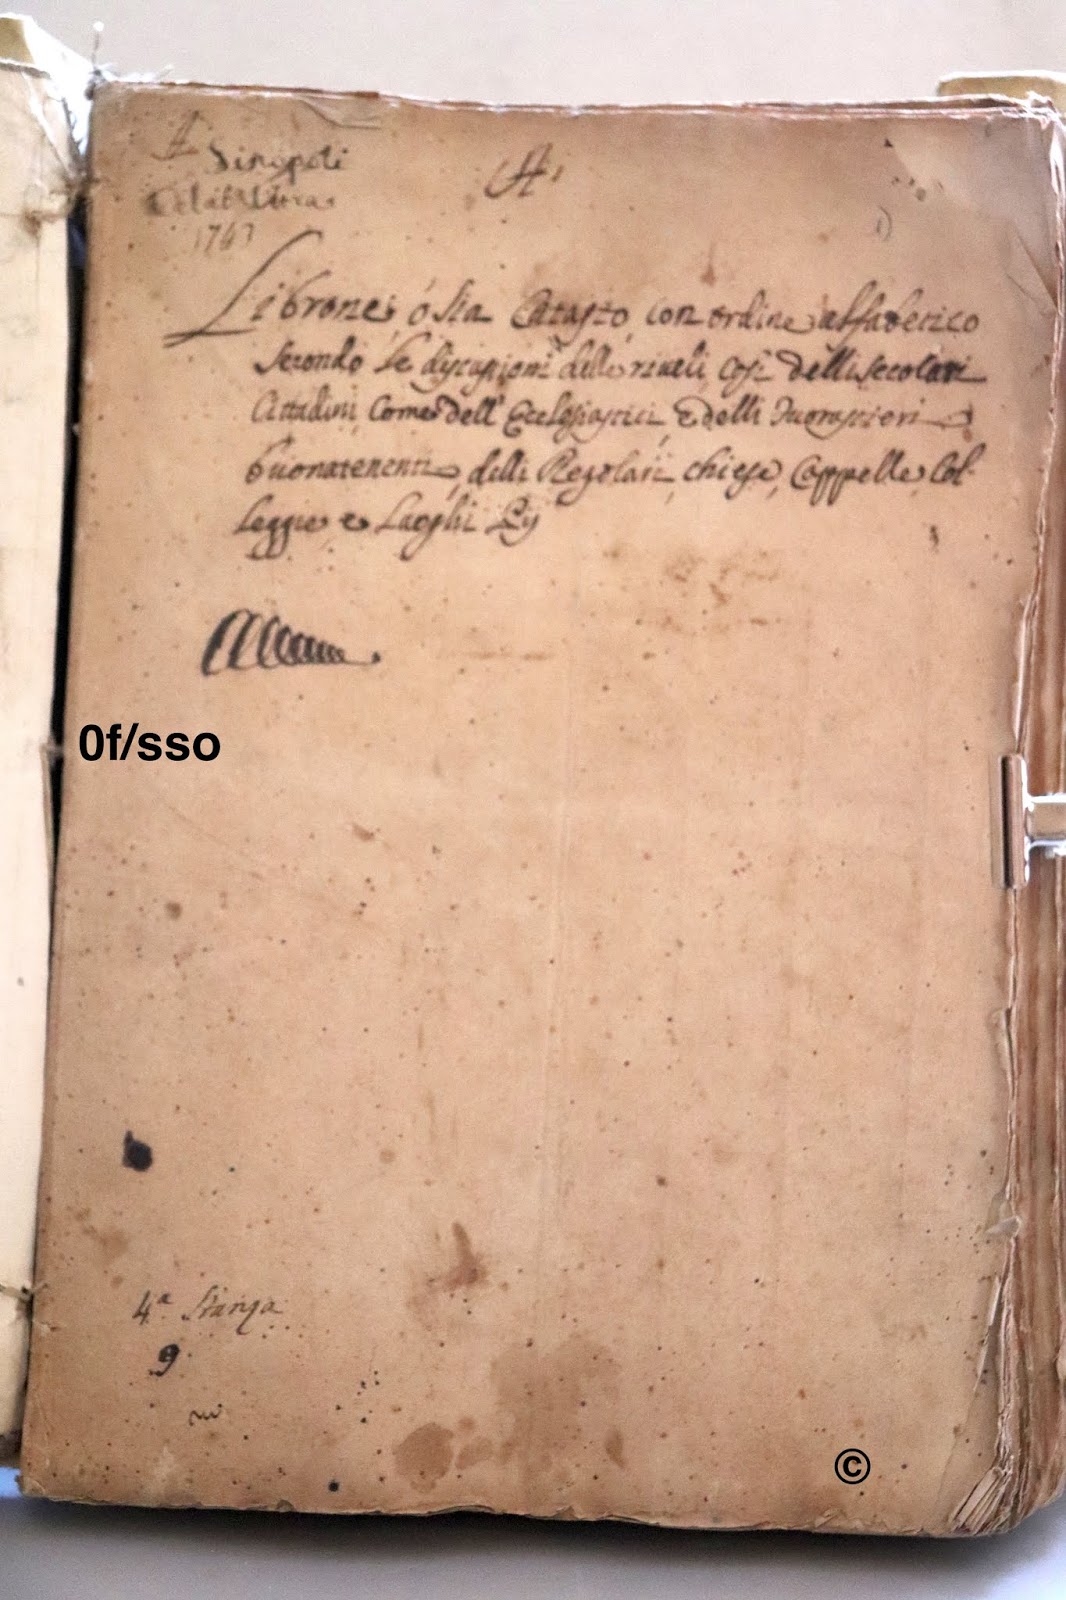 A Sinopoli
Calab Ultra
1743
A
Librone, ó sia Catasto, con ordine alfabetico
secondo le discussioni delle riveli cosi delli secolari
Cittadini, come dell' Ecclesiastici, e delli Fuorastieri
buonatenenti, delli Regolari, chiese, Cappelle, Col-
leggie e Luoghi Pij
0f/sso
4.ª Stanza
9
©